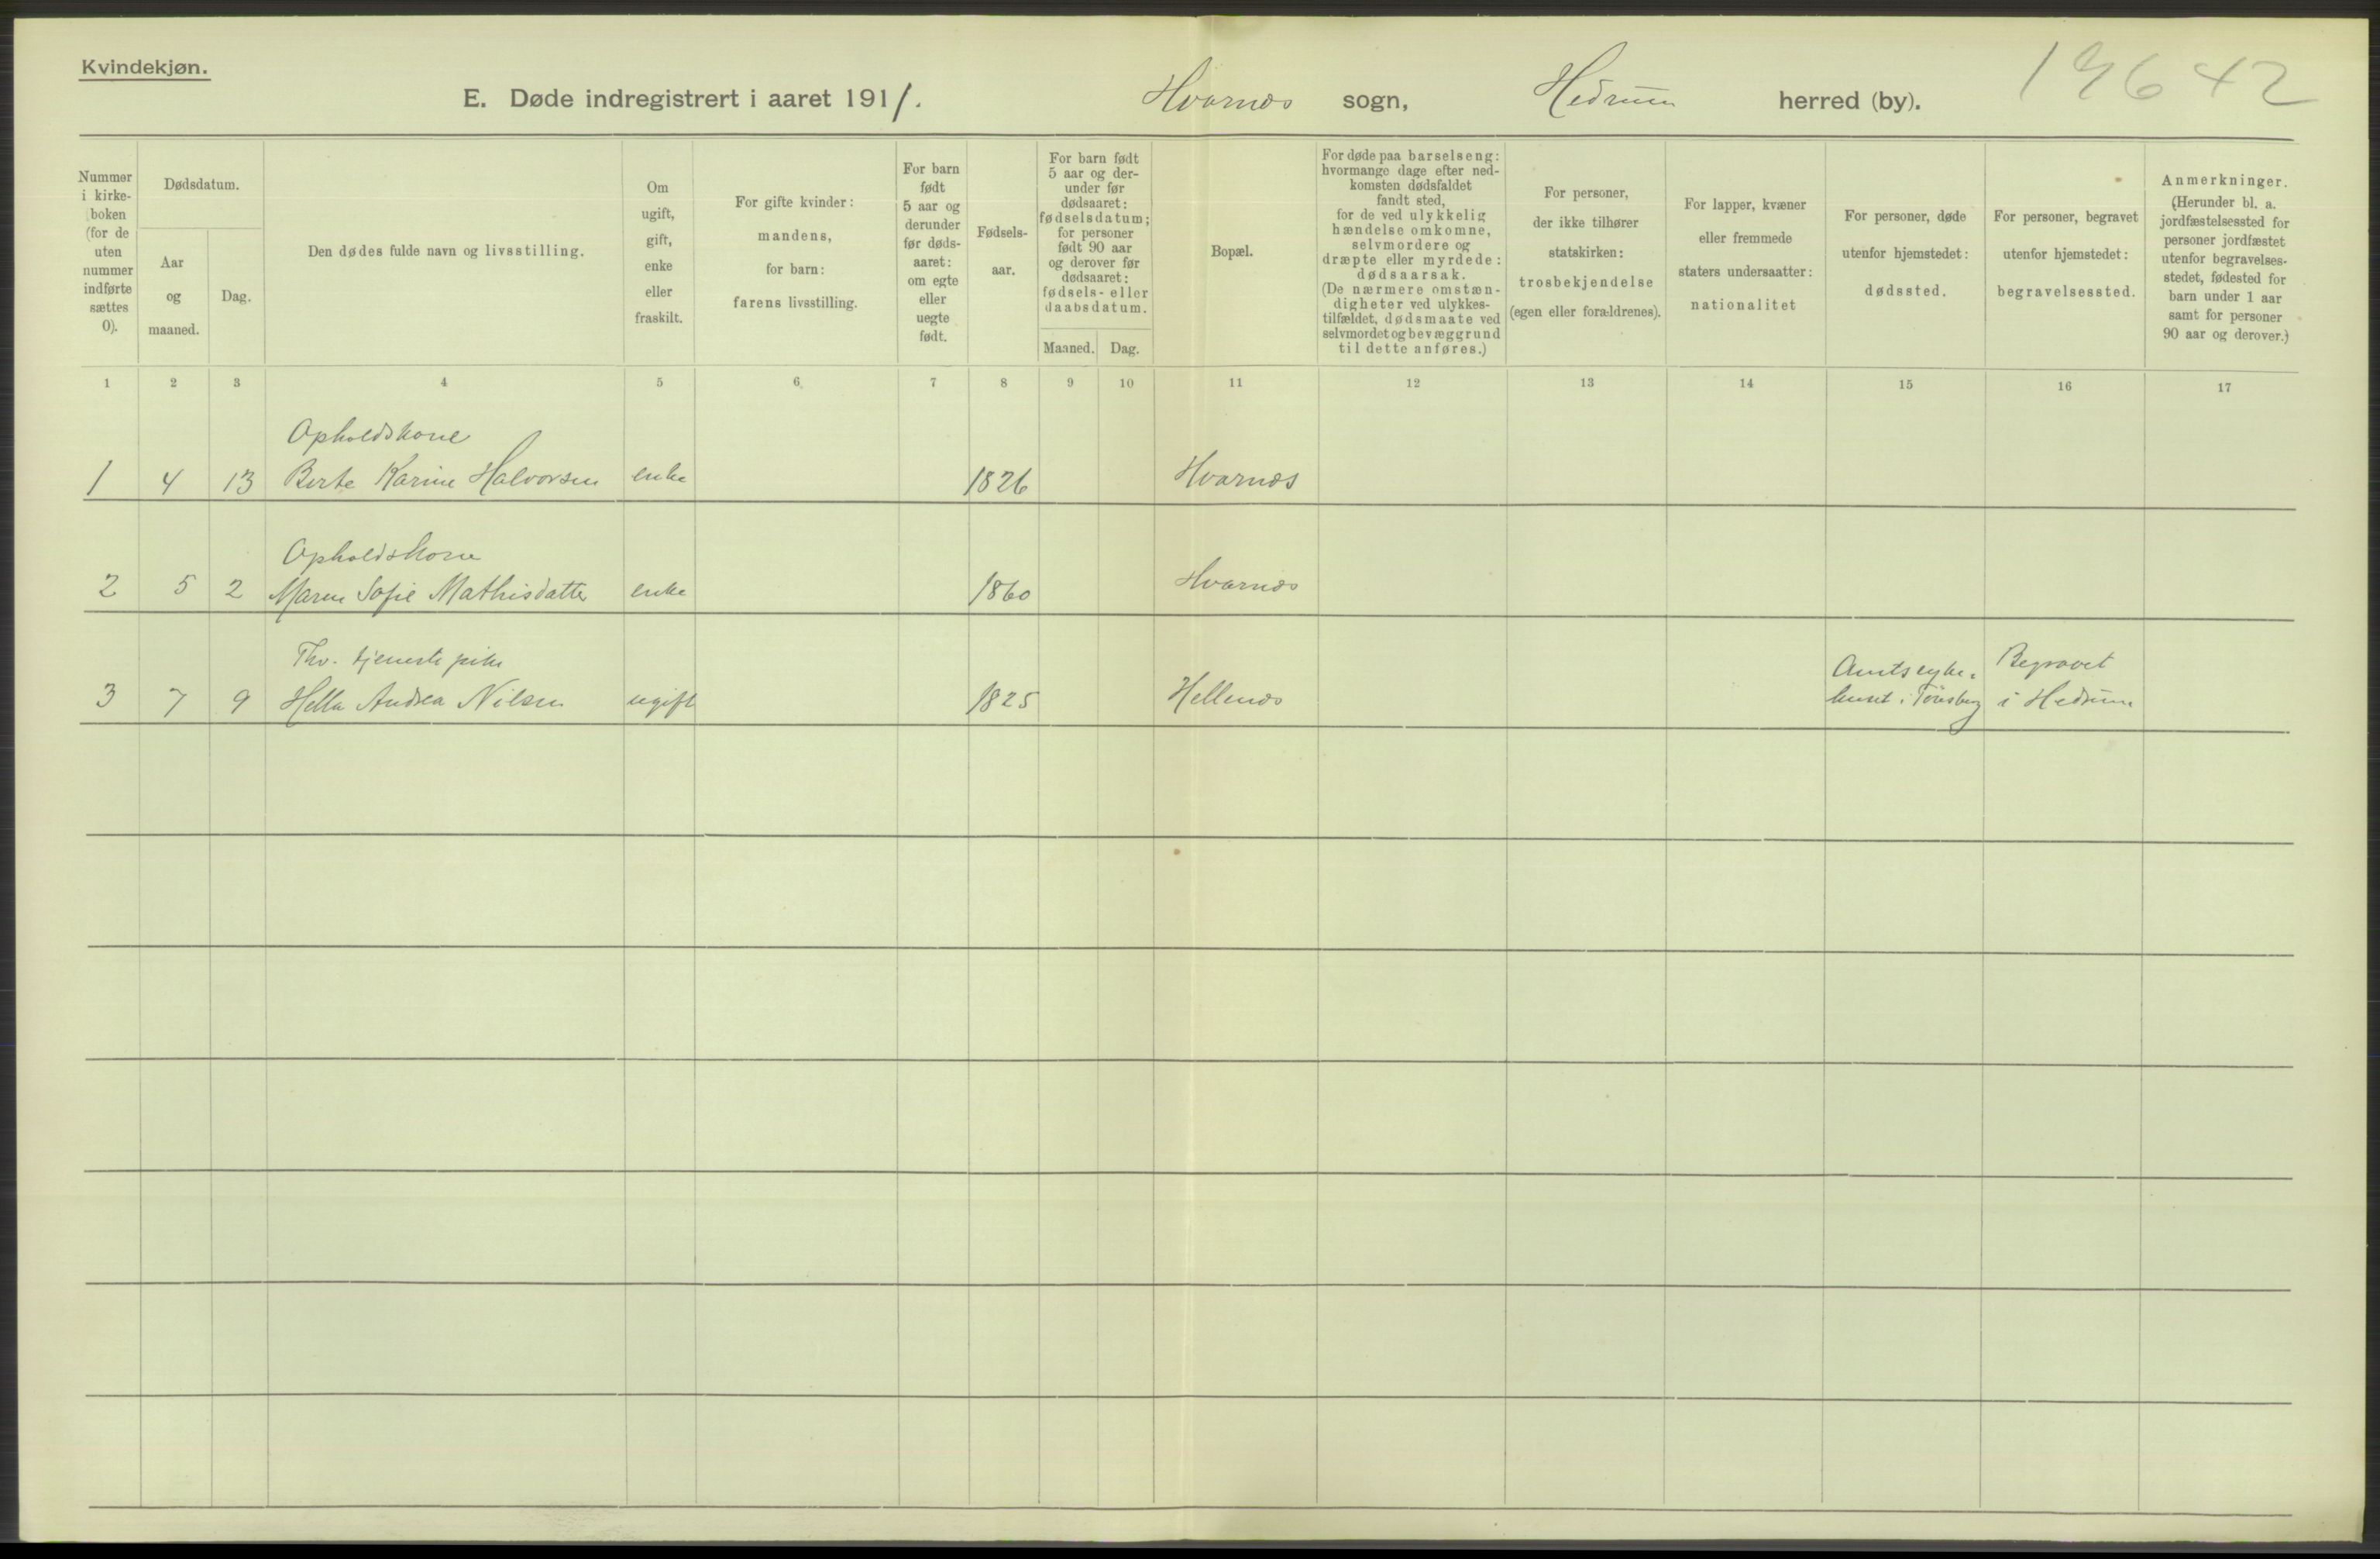 Kvindekjøn.
E. Døde indregistrert i aaret 1911. Hvarnes sogn, Hedrum herred (by).
Nummer i kirkeboken (for de uten nummer indførte sættes 0).
Dødsdatum.
Aar og maaned.
Dag.
Den dødes fulde navn og livsstilling.
Om ugift, gift, enke eller fraskilt.
For gifte kvinder: mandens, for barn: farens livsstilling.
For barn født 5 aar og derunder før dødsaaret: om egte eller uegte født.
Fødselsaar.
For barn født 5 aar og derunder før dødsaaret: fødselsdatum; for personer født 90 aar og derover før dødsaaret: fødsels- eller daabsdatum.
Maaned. Dag.
Bopæl.
For døde paa barselseng: hvormange dage efter nedkomsten dødsfaldet fandt sted, for de ved ulykkelig hændelse omkomne, selvmordere og dræpte eller myrdede: dødsaarsak. (De nærmere omstændigheter ved ulykkestilfældet, dødsmaate ved selvmordet og bevæggrund til dette anføres.)
For personer, der ikke tilhører statskirken: trosbekjendelse (egen eller forældrenes).
For lapper, kvæner eller fremmede staters undersaatter: nationalitet
For personer, døde utenfor hjemstedet: dødssted.
For personer, begravet utenfor hjemstedet: begravelsessted.
Anmerkninger. (Herunder bl. a. jordfæstelsessted for personer jordfæstet utenfor begravelsesstedet, fødested for barn under 1 aar samt for personer 90 aar og derover.)
1 2 3 4 5 6. 7 8 9 10 11 12 13 14 15 16 17
Opholdskone
1 4 13 Berte Karine Halvorsen enke 1826 Hvarnes
Opholdskone
2 5 2 Maren Sofie Mathisdatter enke 1860 Hvarnes
Fhv. tjenestepike Amtssyke- Begravet
3 7 9 Andrea Nilsen ugift 1825 Hellenes huset i Tönsberg i Hedrum